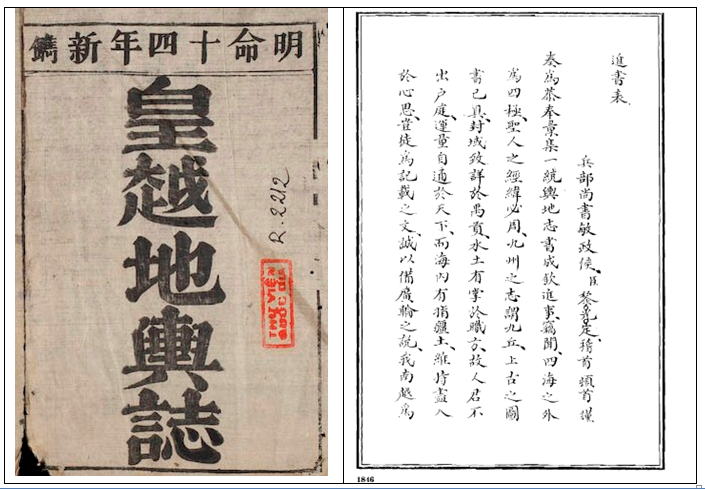 明命十四年新鐫
皇越地輿誌
R.2212
THƯ VIỆN
QUỐC GIA
進書表
兵部尚書敏政侯臣黎光定稽首頓首謹
奏為恭奉彙集一統輿地志書成欽進事竊聞四海之外
為四極聖人之經緯必周九州之志謂九丘上古之圖
書已具封域致詳於禹貢水土有掌於職方故人君不
出户庭運量自通於天下而海內有指疆土維持盡入
於心思豈徒為記載之文誠以備廣輪之說我南越為
1846